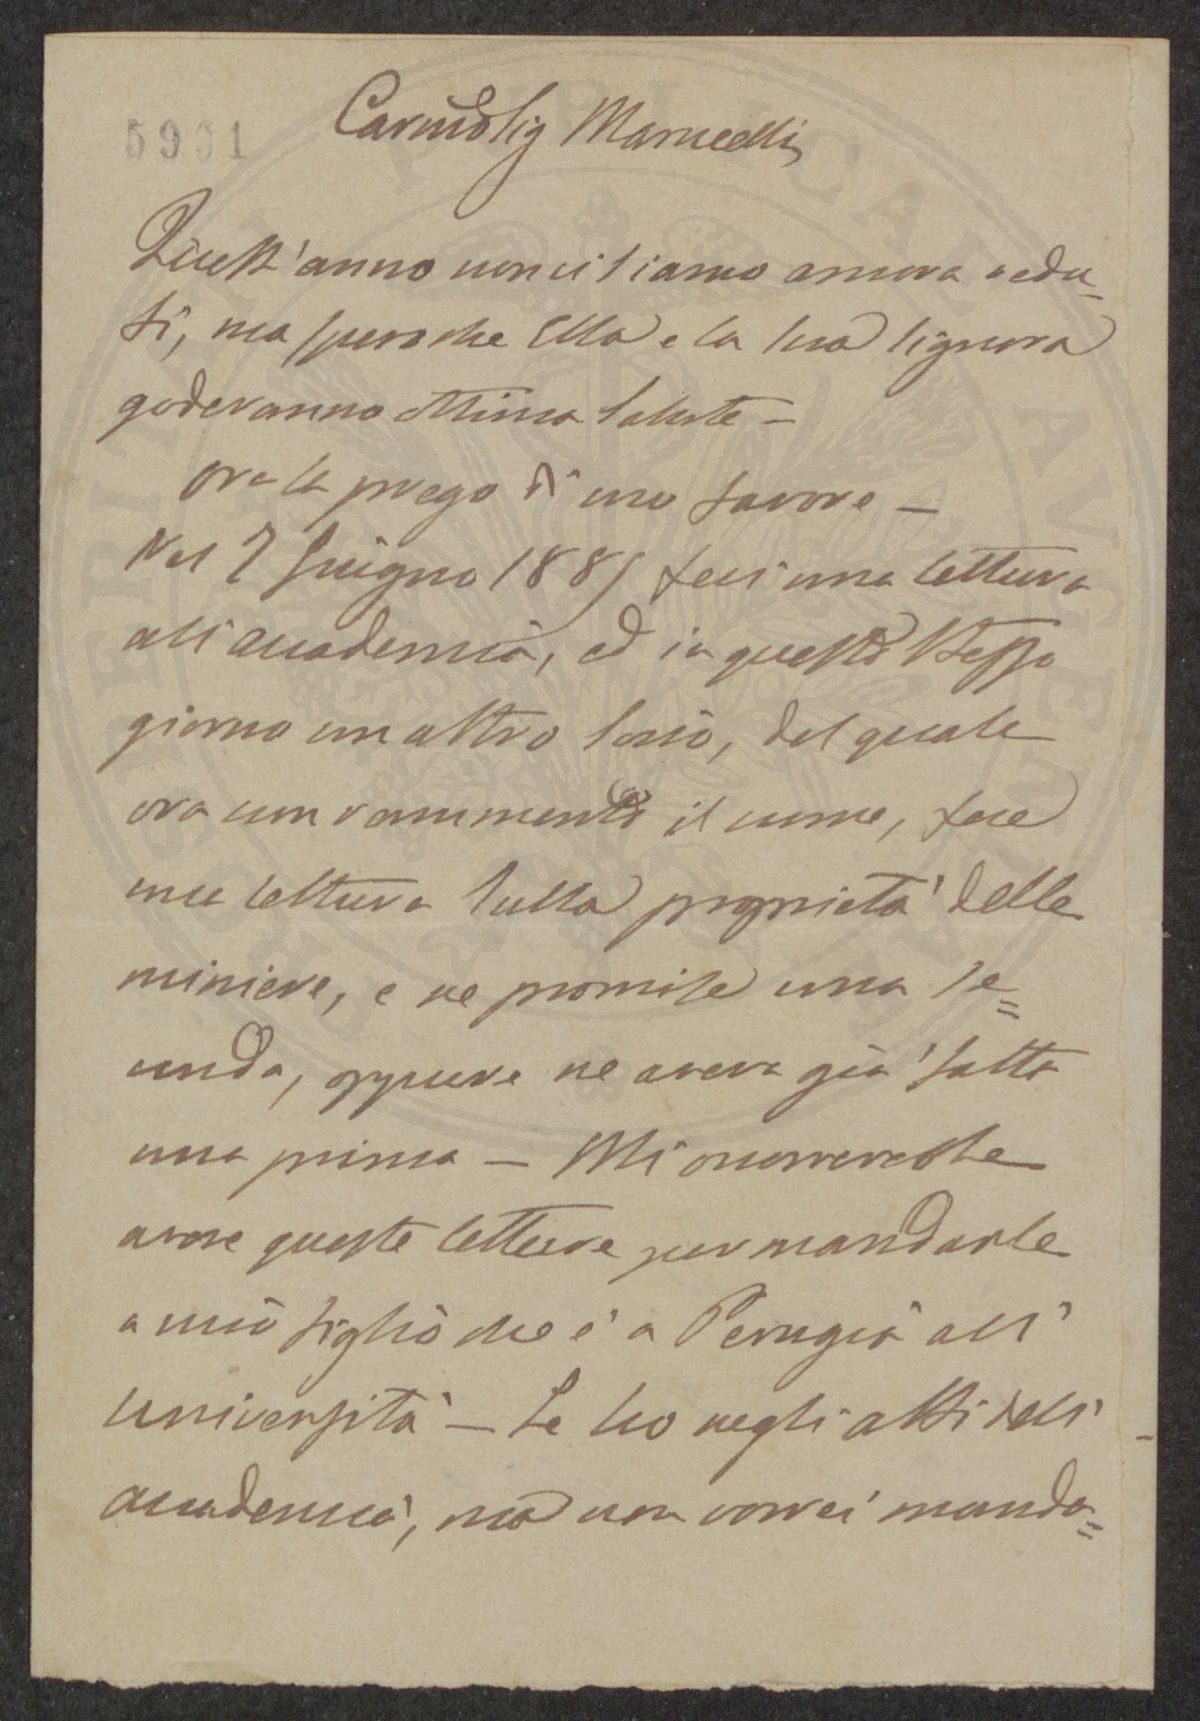 5901
Car.mo Sig Marucelli
Quest'anno non ci siamo ancora vedu-
ti, ma spero che Ella e la sua signora
goderanno ottima salute -
Ora la prego di uno favore -
Nel 7 Giugno 1885 feci una lettura
all'accademia, ed in questo stesso
giorno un altro socio, del quale
ora non rammento il nome, fece
una lettura sulla proprietà delle
miniere, e ne promise una se=
conda, oppure ne aveva già fatta
una prima - Mi occorrerebbe
avere queste letture per mandarle
a mio figlio che è a Perugia all'
università - Le ho negli atti dell'
accademia, ma non vorrei manda=